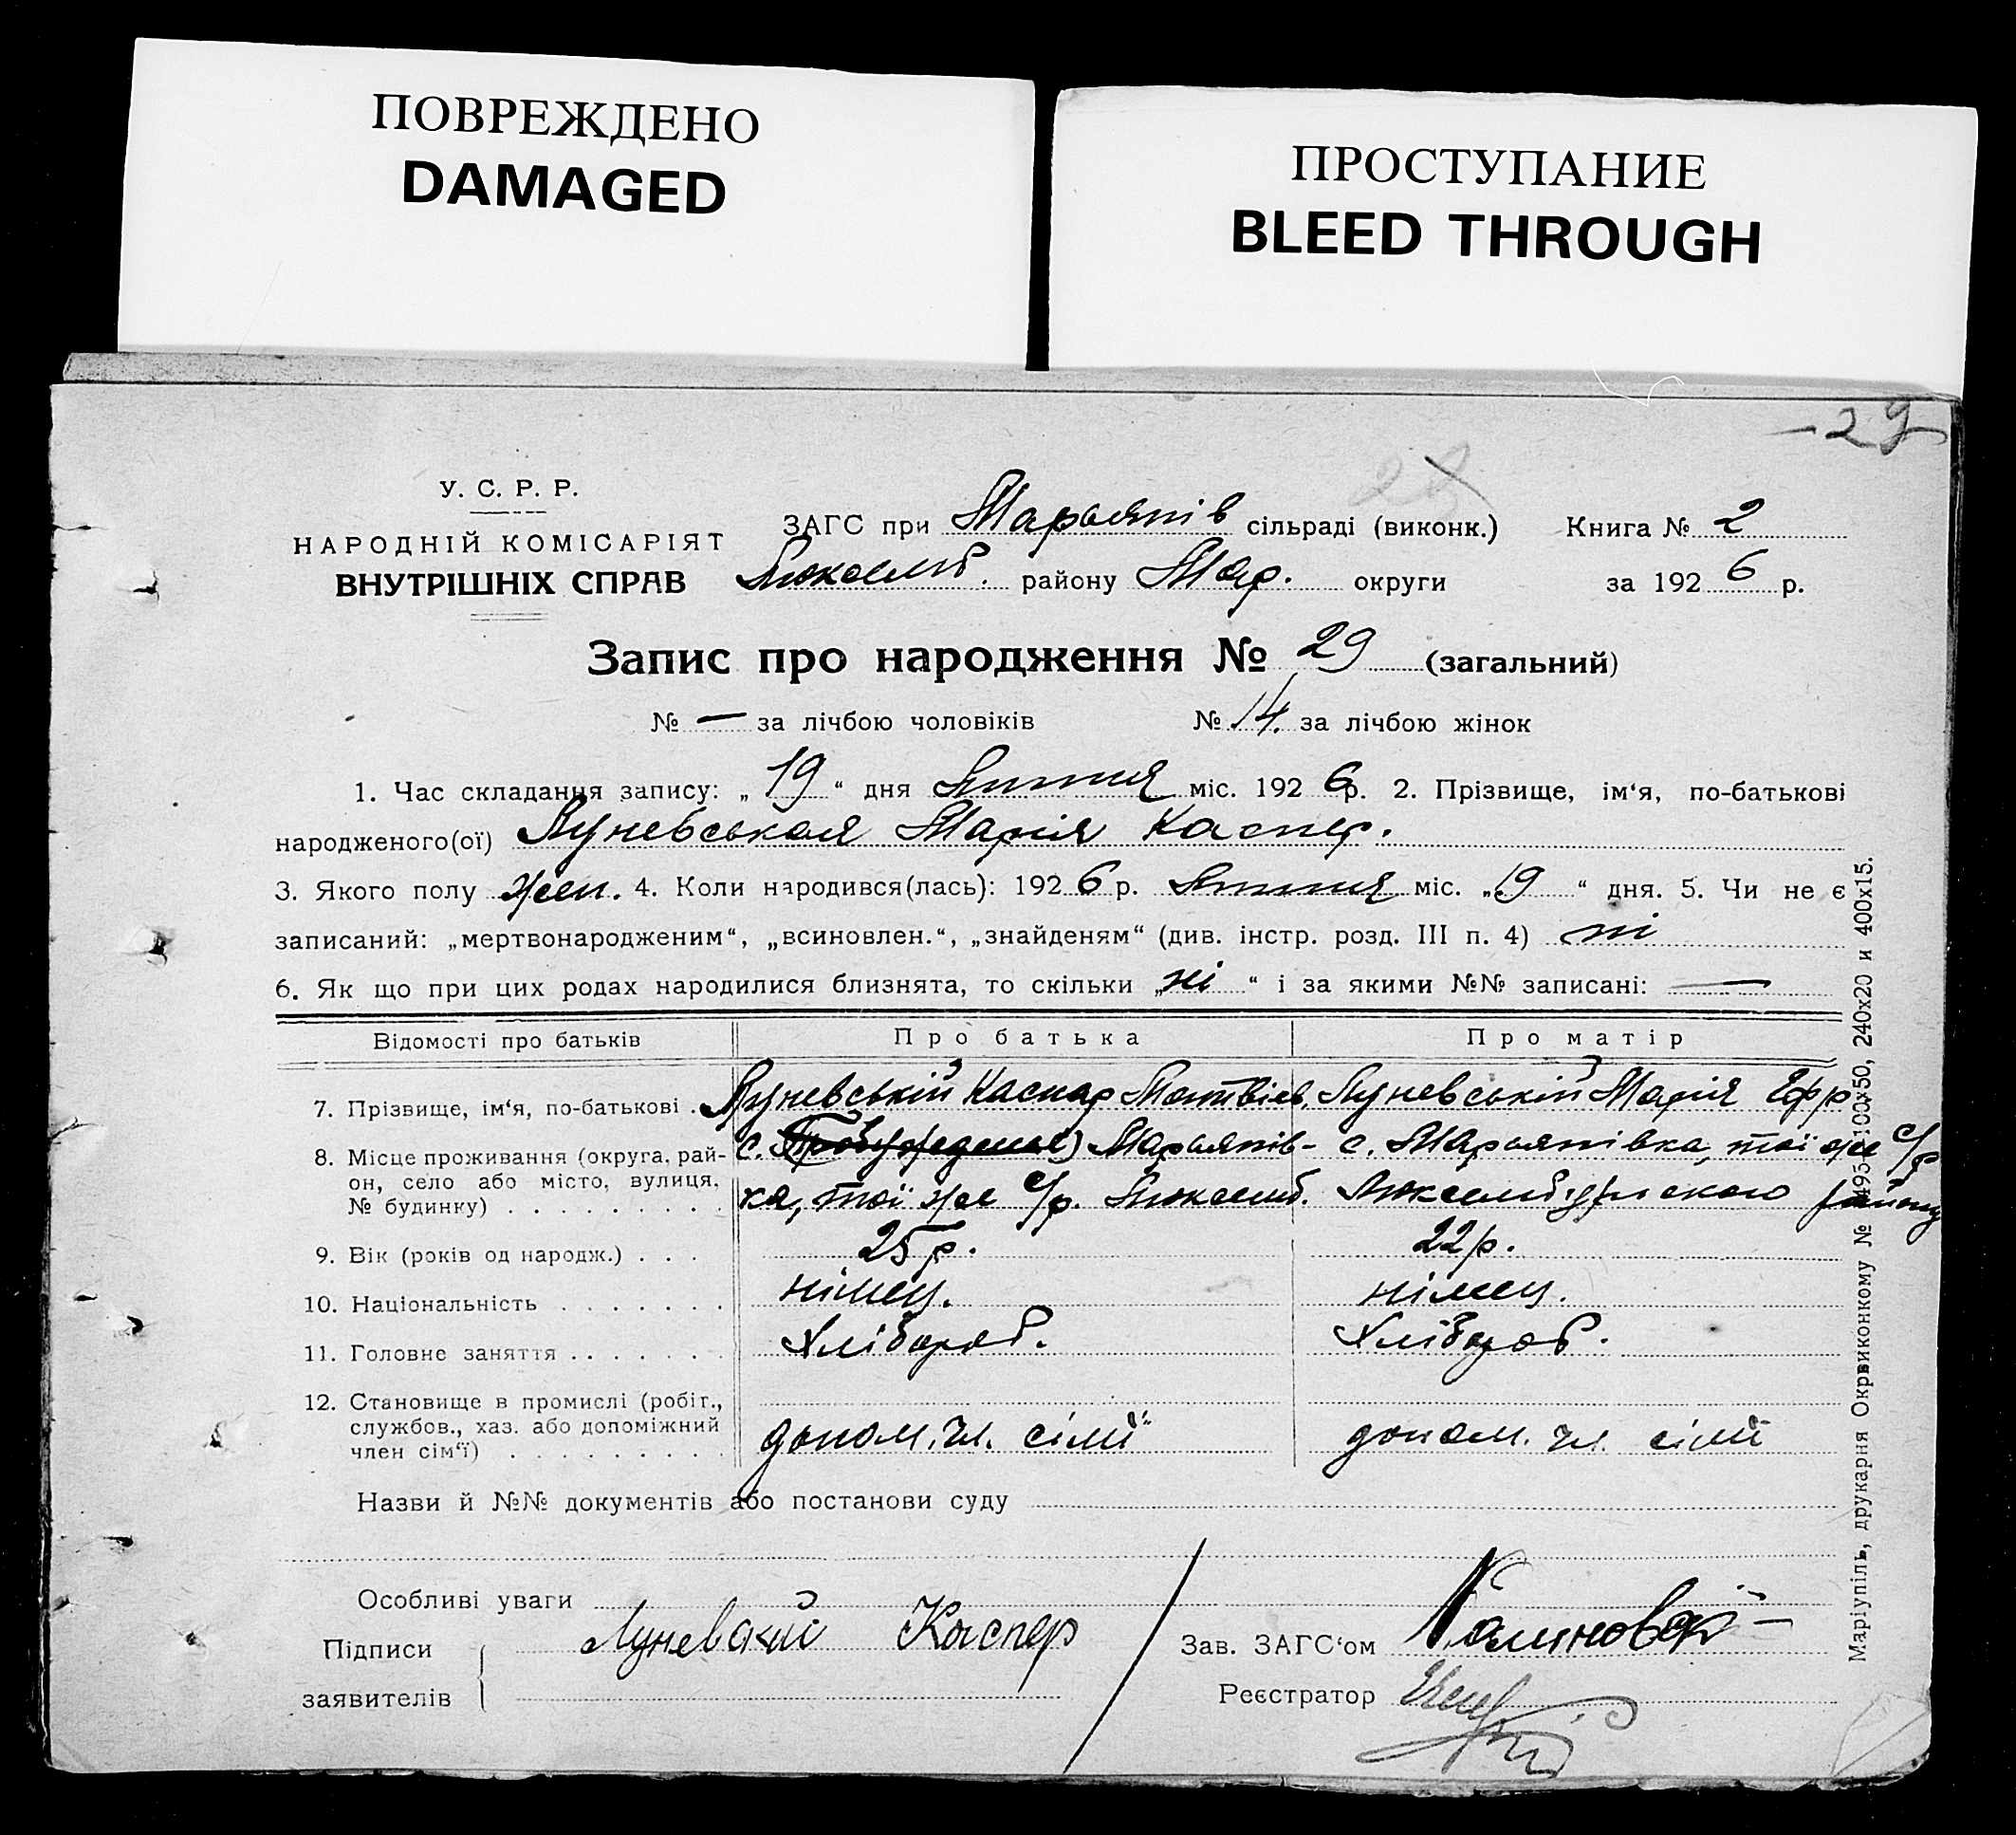 ПОВРЕЖДЕНО
DAMAGED
ПРОСТУПАНИЕ
BLEED THROUGH
29
У. С. Р. Р.
НАРОДНІЙ КОМІСАРІЯТ
ВНУТРІШНІХ СПРАВ
ЗАГС при Марьянів сільраді (виконк.) Книга № 2
Люксемб. району Мар. округи за 1926 р.
Запис про народження № 29 (загальний)
№ — за лічбою чоловіків № 14. за лічбою жінок
1. Час складання запису: „19“ дня Липня міс. 1926 р. 2. Прізвище, ім‘я, по-батькові
народженого(ої) Луневськая Марія Каспер.
3. Якого полу жен. 4. Коли народився(лась): 1926 р. Липня міс. „19“ дня. 5. Чи не є
записаний: „мертвонародженим“, „всиновлен.“, „знайденям“ (див. інстр. розд. III п. 4) ні
6. Як що при цих родах народилися близнята, то скільки „ні“ і за якими №№ записані: —
Відомості про батьків Про батька Про матір
7. Прізвище, ім‘я, по-батькові . Луневській Каспар Матвієв. Луневській Марія Ефр
8. Місце проживання (округа, рай-
он, село або місто, вулиця,
№ будинку) . . . . . . . . .
с. Марьянів-
ка, тої же с/р. Люксемб.
с. Марьянівка, тої же с/р
Люксембургского району
9. Вік (років од народж.) . . . 25 р. 22 р.
10. Національність . . . . . . . німец. німец.
11. Головне заняття . . . . . . . Хлібороб. Хлібороб.
12. Становище в промислі (робіт.,
службов., хаз. або допоміжний
член сім‘ї) . . . . . . . . .
допом. чл. сімї допом. чл. сімї
Назви й №№ документів або постанови суду
Особливі уваги
Підписи
заявителів
Луневский Каспер
Зав. ЗАГС‘ом Калиновский
Реєстратор
Маріупіль, друкарня Окрвиконкому № 495—100х50, 240х20 и 400х15.